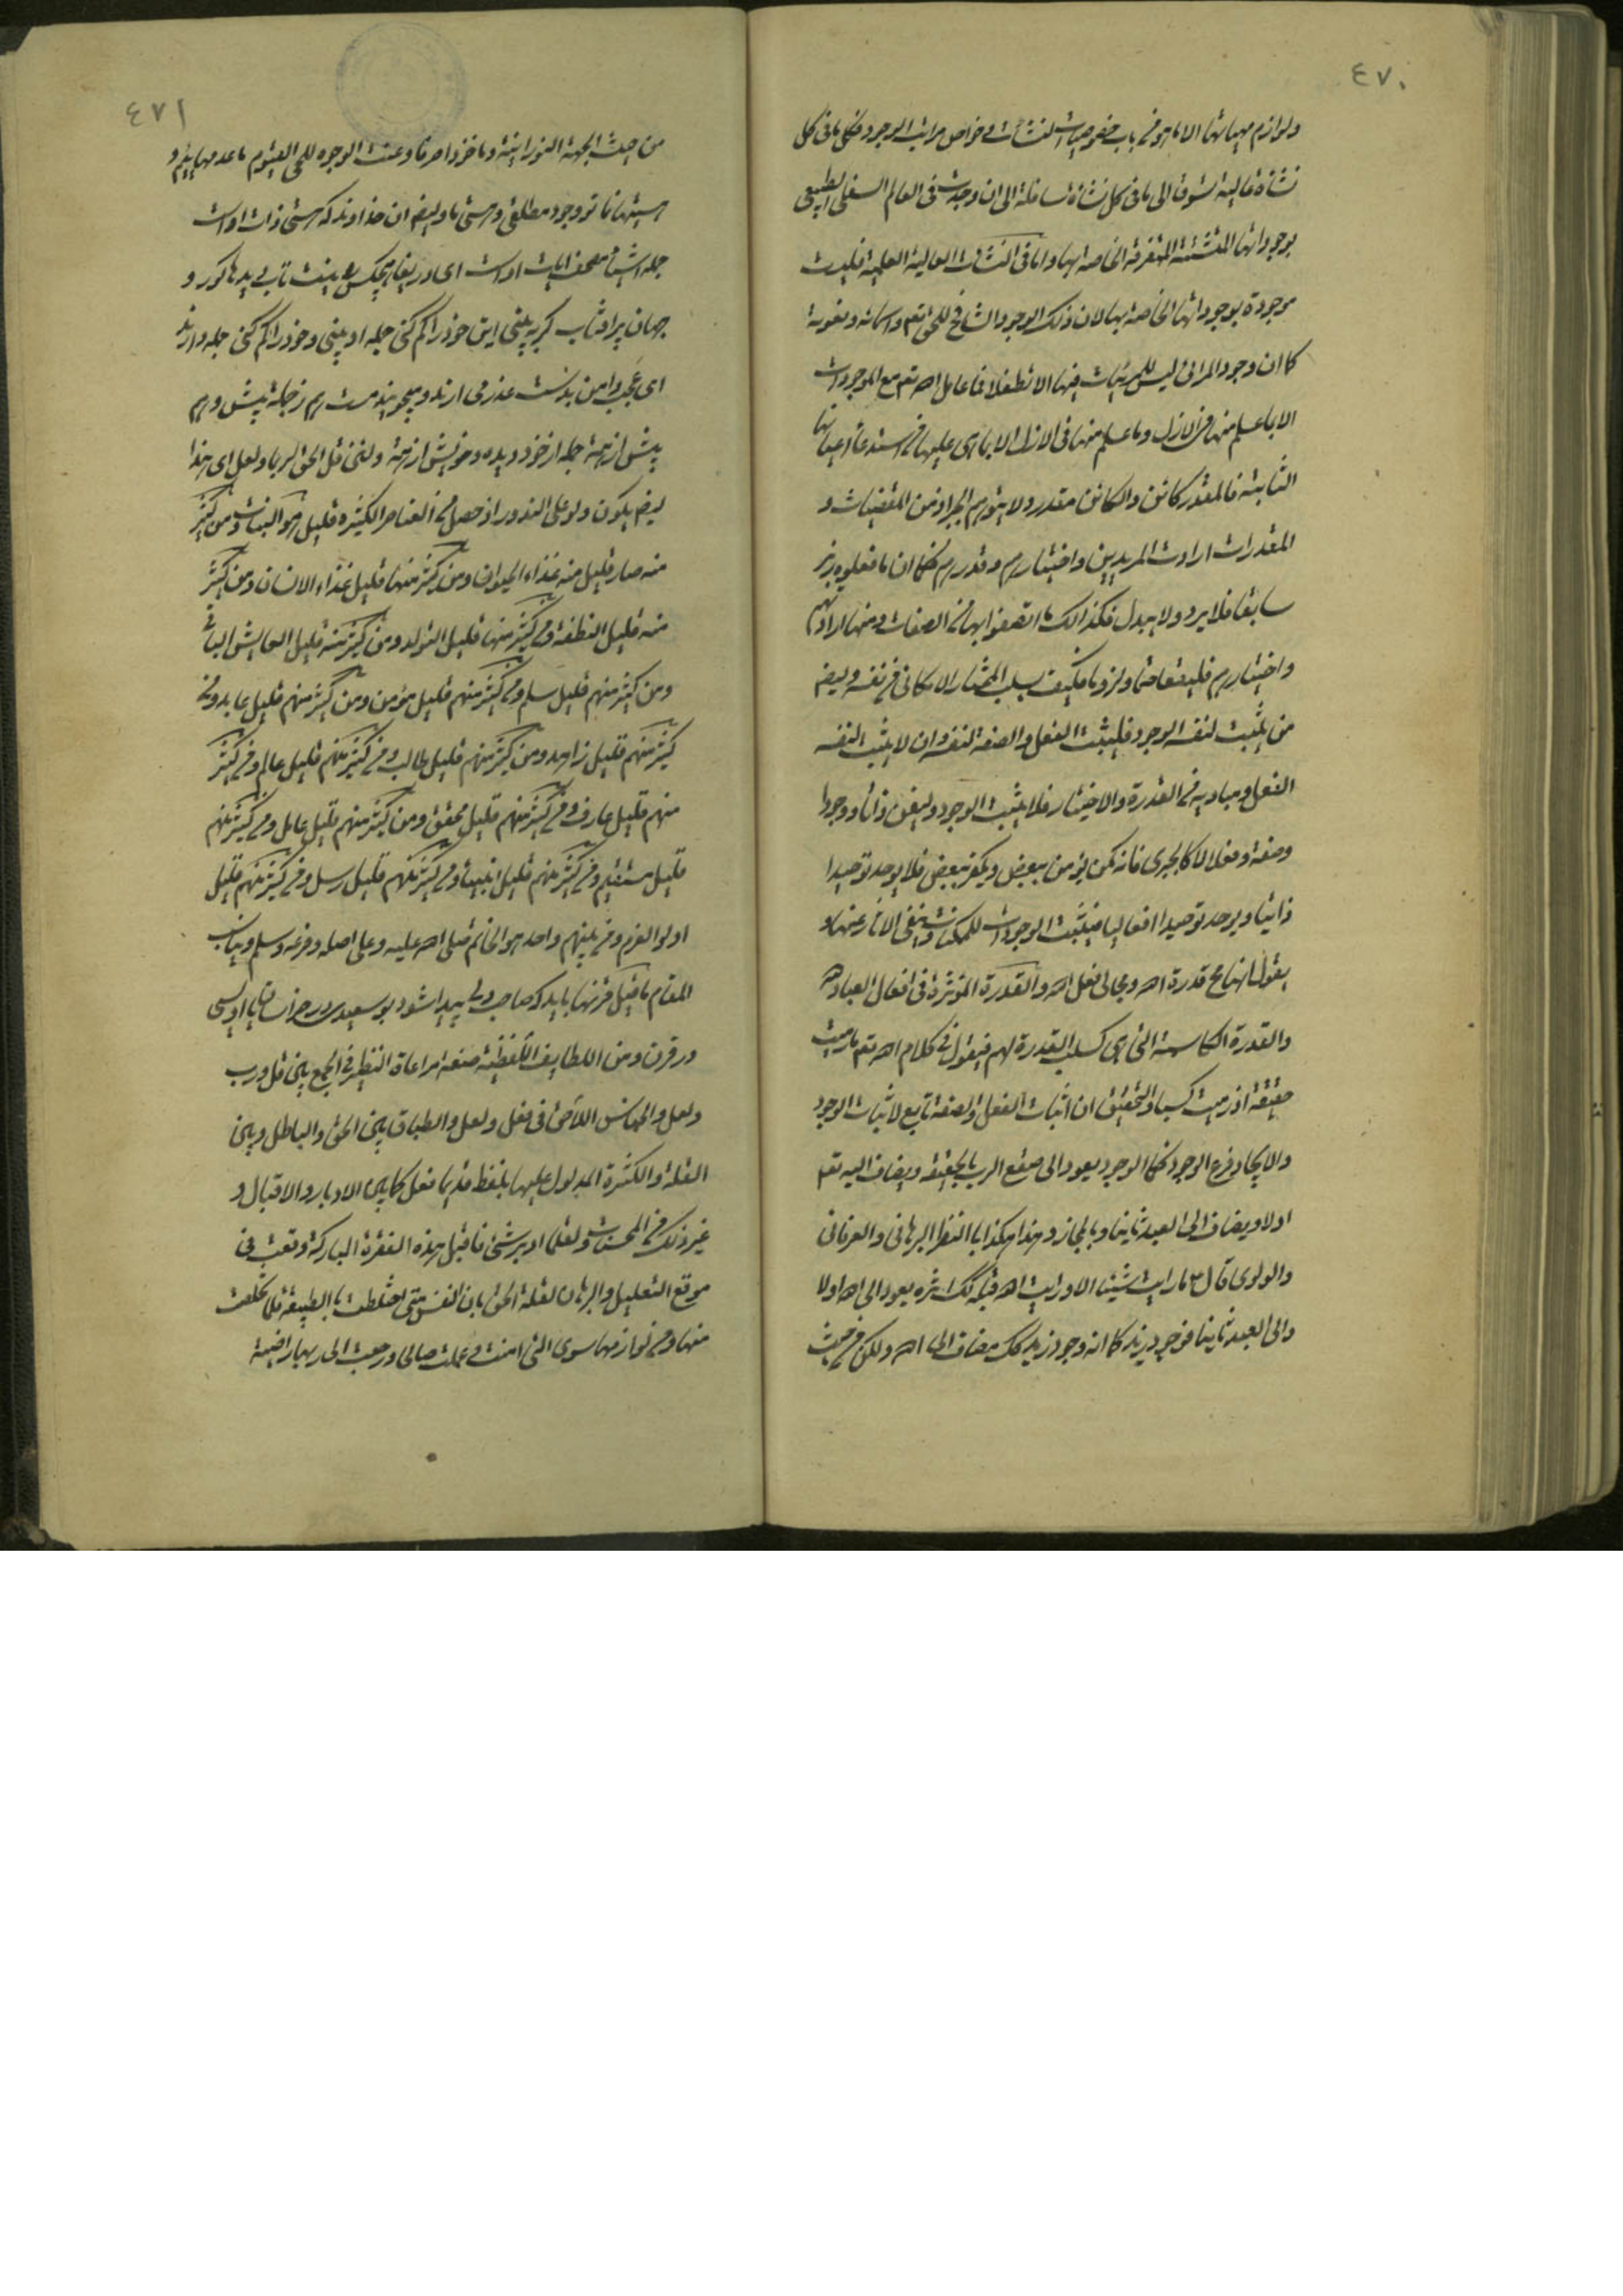 ٤٧٠
ولوازم مهياتها الا ما هو من باب خصوصيات النشآت وخواص مراتب الوجود فكل ما فى كل
نشأة عالية شوق الى ما فى كل نشأة سافلة الى ان وجدت فى العالم السفلى الطبيعى
بوجوداتها المتشتته المتفرقة الخاصة بها واما فى النشآت العالية العلمية فليست
موجودة بوجوداتها الخاصة بها لان ذلك الوجود الشامخ للحق تعم واسمائه
كما ان وجود المرائى ليس للمرئيات فيها الا تطفلا فما عامل اله تعم مع الموجودات
الا بما علم منها فى الازل وما علم منها فى الازل الا بما هى عليها من استدعاآت اعيانها
الثابتة فالمقدر كائن والكائن مقدر ولا يتوهم الجبر اذ من المقضيات و
المقدرات ارادت المريدين واختيارهم وقدرهم فكما ان ما فعلوه زبر
سابقا فلا يرد ولا يبدل فكذلك ما اتصفوا بها من الصفات ومنها ارادتهم
واختيارهم فليقعا حتما ولزوما فكيف يسلب المختار الامكانى عن نفسه وليضم
من يثبت لنفسه الوجود فليثبت الفعل والصفة لنفسه وان لا يثبت لنفسه
الفعل ومباديه من القدرة والاختيار فلا يثبت الوجود وليفن ذاتا ووجودا
وصفة وفعلا لا كالجبرى فانه كمن يؤمن ببعض ويكفر ببعض فلا يوحد توحيدا
ذاتيا ويوحد توحيدا افعاليا فيثبت الوجودات للممكنات وينفى الاثار عنها و
يقول انها مح قدرة اله ومجالى فعل اله والقدرة المؤثرة فى افعال العباد له
والقدرة الكاسبة التى هى كسلب القدرة لهم فيقول فى كلام اله تعم ما رميت
حقيقة اذ رميت كسبا والتحقيق ان اثبات الفعل والصفة تابع لاثبات الوجود
والايجاد فرع الوجود فكما الوجود يعود الى صقع الرب بالحقيقة ويضاف اليه تعم
اولا ويضاف الى العبد ثانيا وبالمجاز وهذا هكذا بالنظر البرهانى والعرفانى
والولوى قال ع ما رايت شيئا الا ورايت اله قبله كك اثره يعود الى اله اولا
والى العبد ثانيا فوجود زيد كما انه وجود زيد كك مضاف الى اله ولكن من حيث
٤٧١
من حيث الجهة النورانية وماخوذا صرفا وعنت الوجوه للحى القيوم ما عدمهاييم و
هستيها نما تو وجود مطلق و هستى ما وليضم ان خداوند كه هستى ذات اوست
جمله اشيا مصحف ايات اوست اى دريغا هيچكس را نيست تاب ديدها كور و
جهان پر افتاب گر ببينى اين خود را گم كنى جمله او بينى و خود را گم كنى جمله دارند
اى عجب دامن بدست عذر مى ارند و ميجويند هست هم ز جمله پيش و هم
پيش از همه جمله از خود ديده و خويش از همه ولئن قل الحق لربما ولعل اى هذا
ليضم يكون ولو على الندور اذ حصل من العناصر الكثيره قليل هو النبات ومن كثير
منه صار قليل منه غذاء الحيوان ومن كثير منها قليل غذاء الانسان ومن كثير
منه قليل النطفة ومن كثير منها قليل التولد ومن كثير منه قليل العايش الباقى
ومن كثير منهم قليل سلم ومن كثير منهم قليل مؤمن ومن كثير منهم قليل عابد ومن
كثير منهم قليل زاهد ومن كثير منهم قليل طالب ومن كثير منهم قليل عالم ومن كثير
منهم قليل عارف ومن كثير منهم قليل محقق ومن كثير منهم قليل عامل ومن كثير منهم
قليل مستقيم ومن كثير منهم قليل انبياء ومن كثير منهم قليل رسل ومن كثير منهم قليل
اولو العزم ومن بينهم واحد هو الخاتم صلى اله عليه وعلى اصله وفرعه وسلم ويناسب
المقام ما قيل قرنها بايد كه صاحب دلى پيدا شود بو سعيدى در خراسان يا اويسى
در قرن ومن اللطايف اللفظية صنعة مراعاة النظير فى الجمع بين قل ورب
ولعل والجناس اللاحق فى فعل ولعل والطباق بين الحق والباطل وبين
القلة والكثرة المدلول عليها بلفظ قديما فعل كما بين الادبار والاقبال و
غير ذلك من المحسنات ولقلما ادبر شئ فاقبل هذه الفقرة المباركة وقعت فى
موقع التعليل والبرهان لقلة الحق بان النفس متى اختلطت بالطبيعة قلما تخلصت
منها ومن لوازمها سوى التى امنت وعملت صالحا ورجعت الى ربها راضية